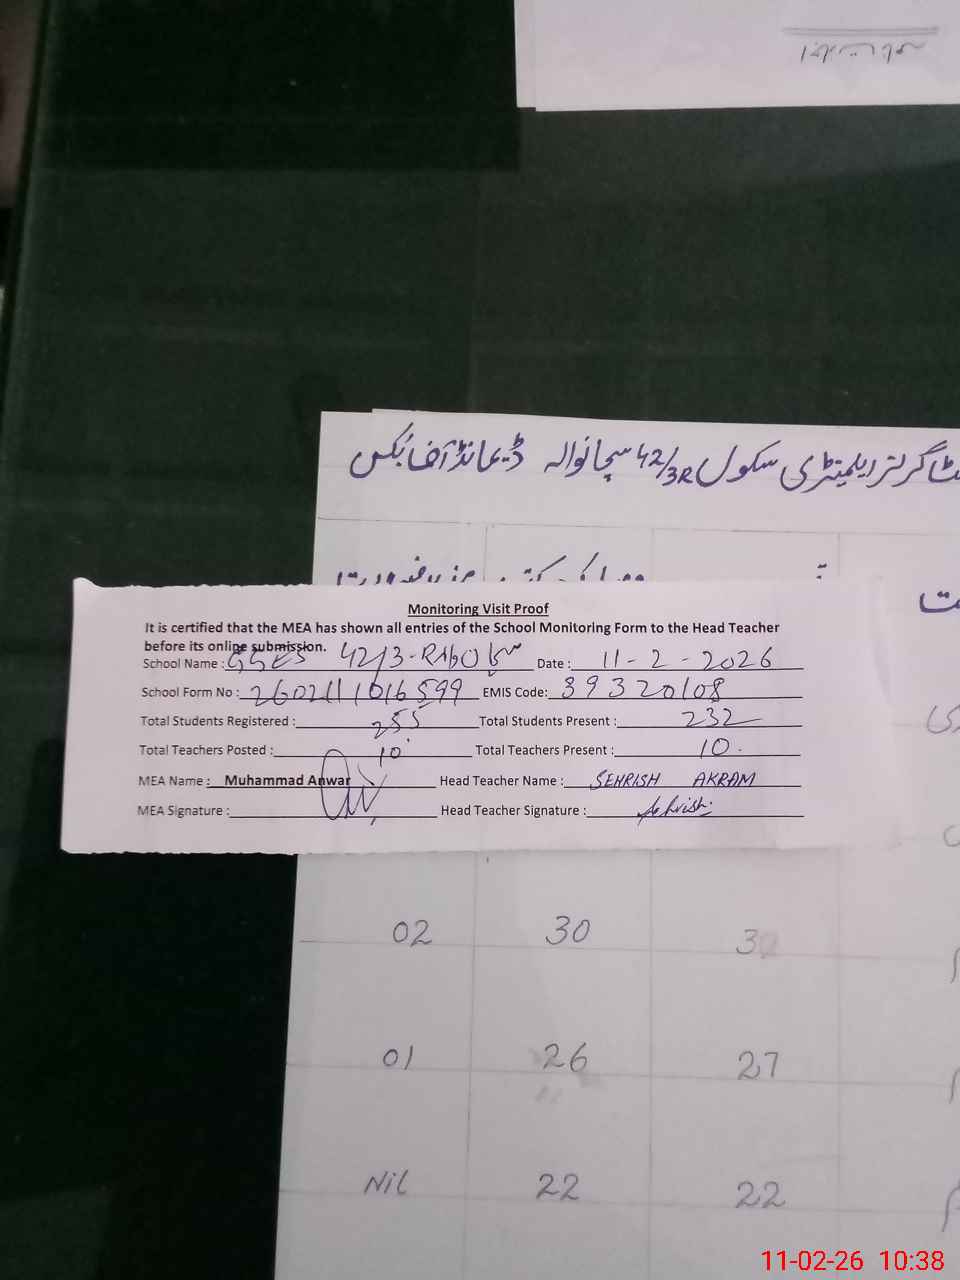 گرلز ایلیمنٹری سکول 42/3R سچانوالہ ڈیمانڈ آف بکس
Monitoring Visit Proof
It is certified that the MEA has shown all entries of the School Monitoring Form to the Head Teacher
before its online submission.
School Name : GGES 42/3-R Date : 11-2-2026
School Form No : EMIS Code: 39320108
Total Students Registered : 255 Total Students Present : 232
Total Teachers Posted : 10 Total Teachers Present : 10.
MEA Name : Muhammad Anwar Head Teacher Name : SEHRISH AKRAM
MEA Signature : Head Teacher Signature : Sehrish
02 30 30
01 26 27
Nil 22 22
11-02-26 10:38